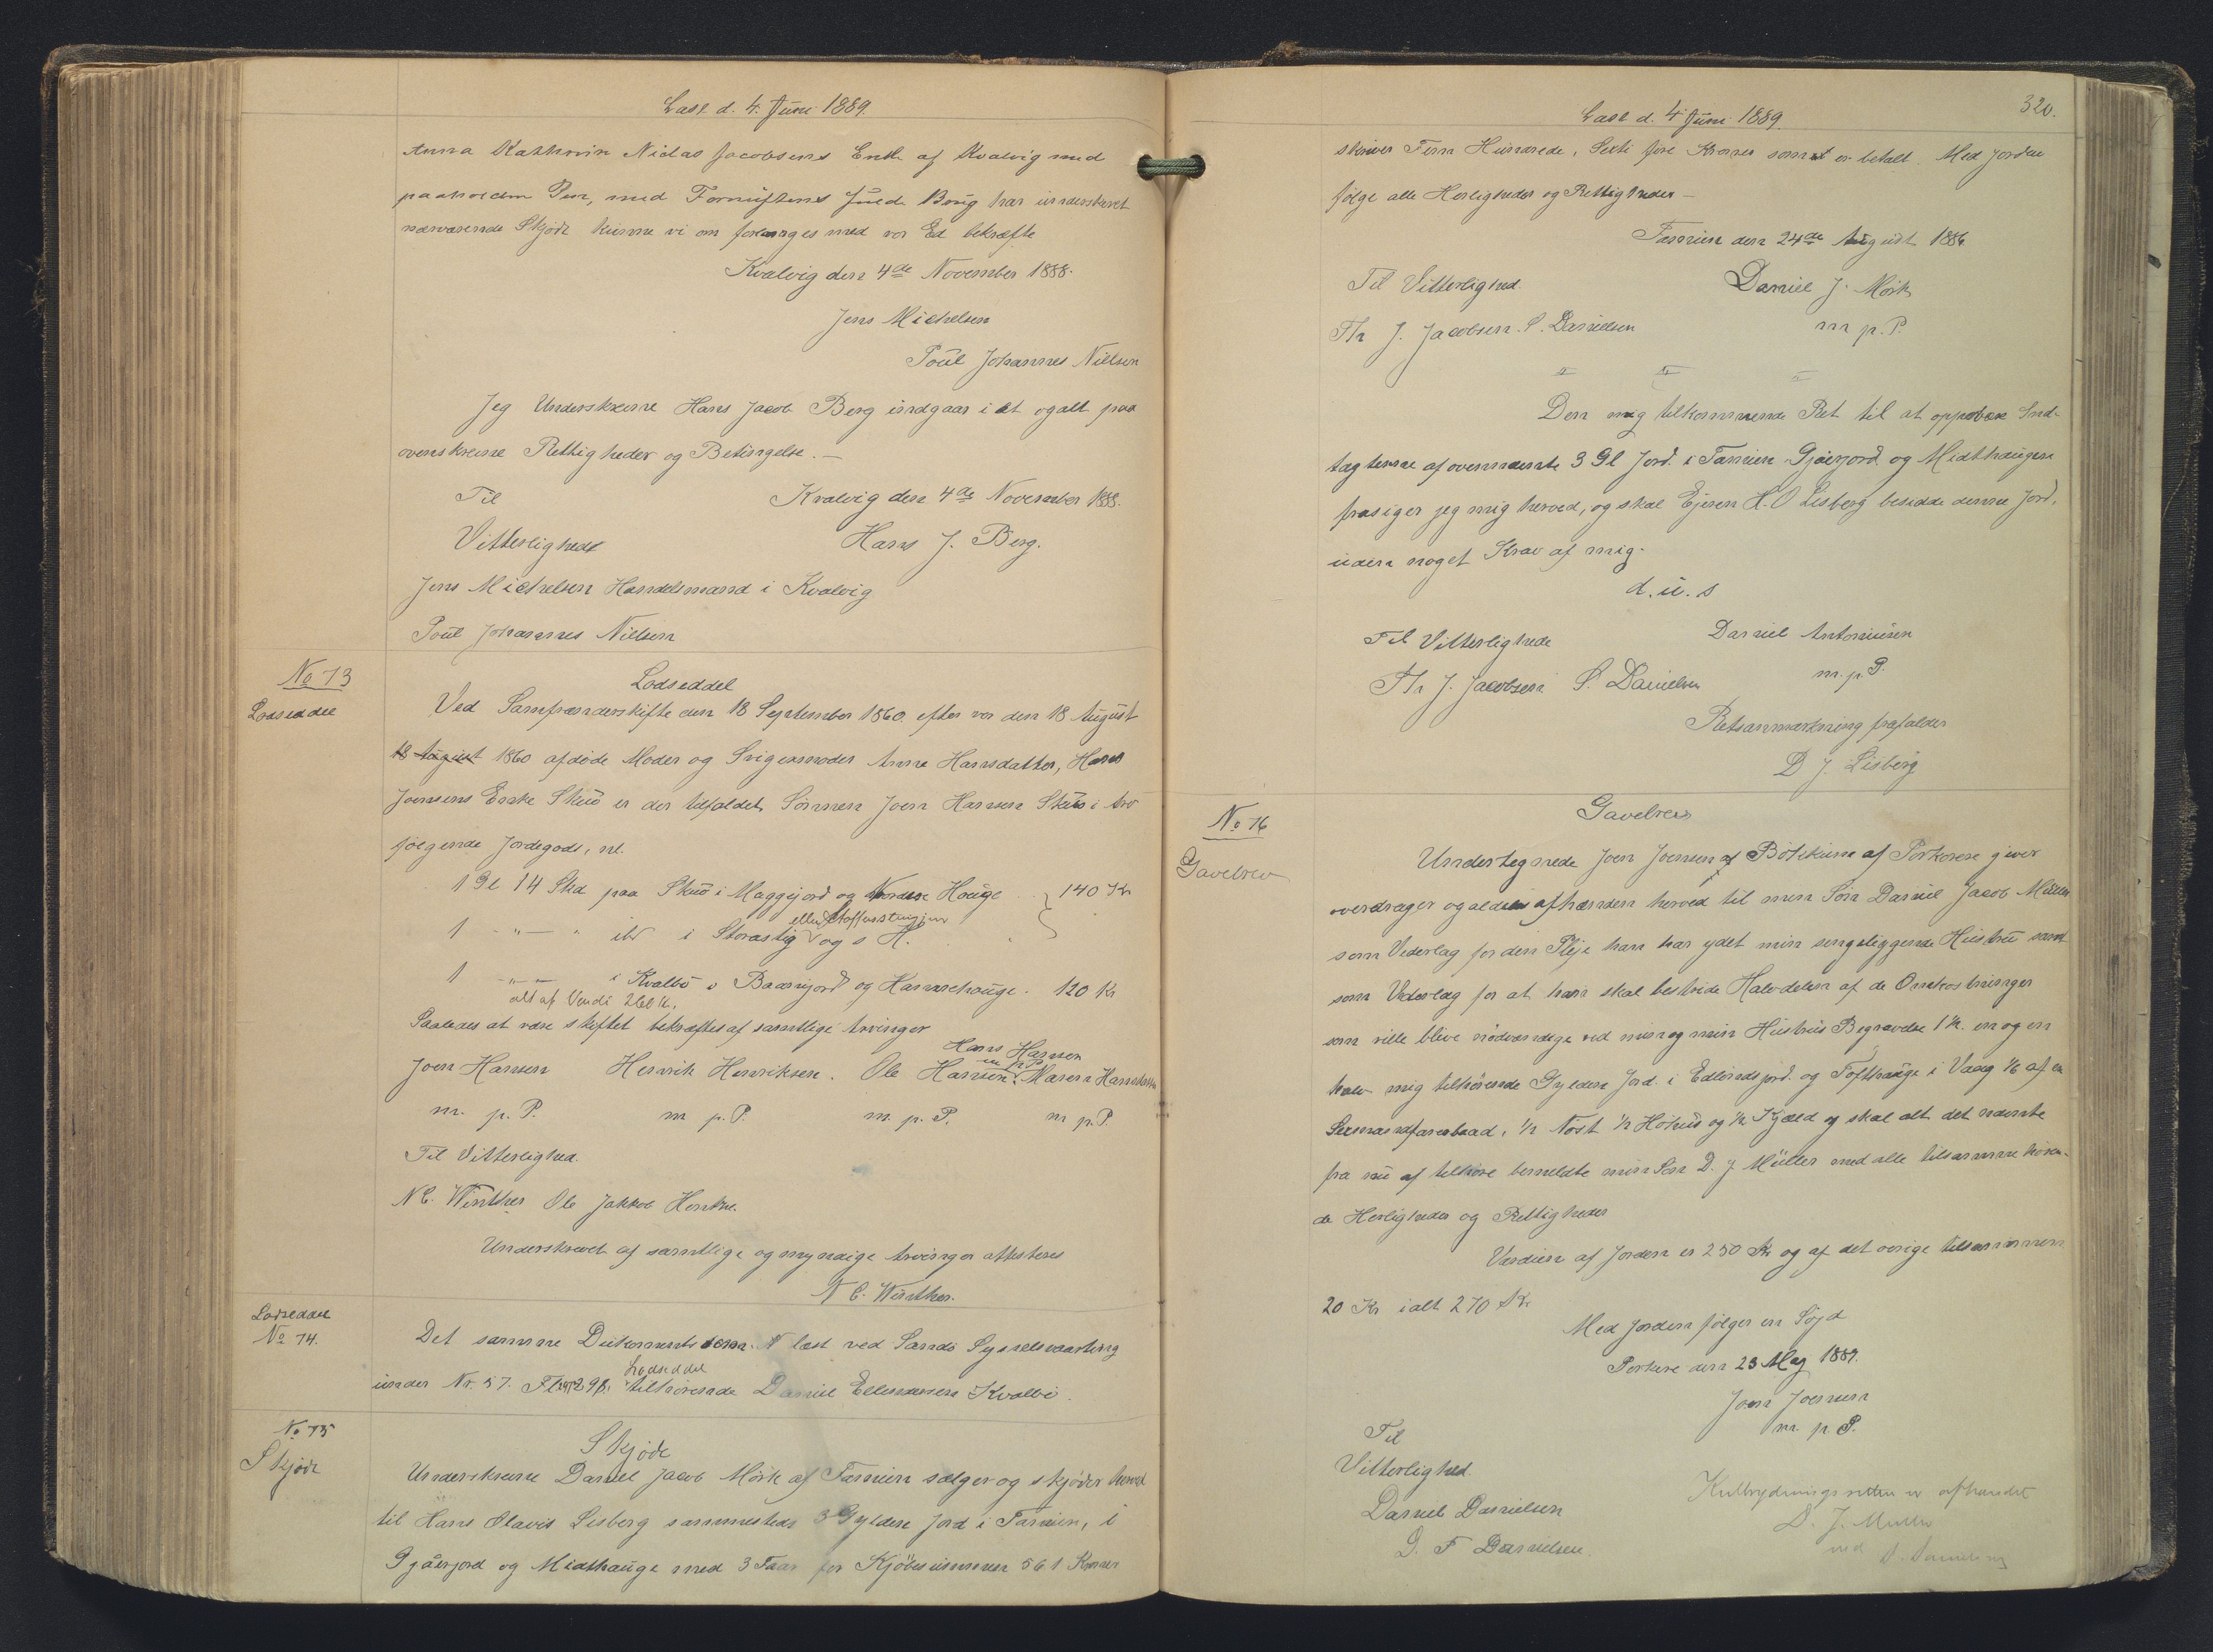 Læst d. 4. Juni 1889.
Anna Kathrin Niclas Jacobsens Enke af Kvalvig med
paaholden Pen, med Fornuftens fulde Brug har underskrevet
nærværende Skjøde kunne vi om forlanges med vor Ed bekræfte
Kvalvig den 4de November 1888.
Jens Michelsen
Poul Johannes Nielsen
Jeg Underskrevne Hans Jacob Berg indgaar i et og alt paa
ovenskrevne Rettigheder og Betingelse.—
Til Kvalvig den 4de November 1888.
Vitterlighed Hans J. Berg.
Jens Michelsen Handelsmand i Kvalvig
Poul Johannes Nielsen
No 73
Lodseddel
Lodseddel
Ved Samfrænderskifte den 18 September 1860 efter vor den 18 August
18 August 1860 afdøde Moder og Svigermoder Anne Hansdatter, Hans
Joensens Enke Skuø er der tilfaldet Sønnen Joen Hansen Skuø i Arv
følgende Jordegods, nl.
1 Gl 14 Skd paa Skuø i Maggijord og Nordere Houge 140 Kr
1 -"- " ibd i Storastig eller og s H.
1 -"- i Kvalbø i Baarujord og Hamrehauge. 120 Kr
alt af Værdi 260 Kr.
Saaledes at være skiftet bekræftes af samtlige Arvinger
Hans Hansen
m p P
Joen Hansen Henrik Henriksen. Ole Hansen. Maren Hansdatter
m. p. P. m p. P. m. p. P. m p. P.
Til Vitterlighed.
N C. Winther Ole Jakkob
Underskrevet af samtlige og myndige Arvinger attesteres
N C. Winther.
Lodseddel
No 74.
Det samme Dokument som læst ved Sandø Sysselsvaarting
under Nr. 57. Lodseddel tilhørende Daniel Ellendersen Kvalbø.
No 75
Skjøde
Skjøde
Underskrevne Daniel Jacob Mørk af Famien sælger og skjøder herved
til Hans Olavis Lisberg sammesteds 3 Gylden Jord i Famien, i
Gjåerjord og Midthauge med 3 Faar for Kjøbesummen 561 Kroner
320.
Læst d. 4 Juni 1889.
skriver Fem Hundrede, Sexti fire Kroner som er betalt. Med Jorden
følge alle Herligheder og Rettigheder—
Famien den 24de August 1886
Til Vitterlighed. Daniel J. Mørk
J. Jacobsen. S. Danielsen m p. P.
Den mig tilkommende Ret til at oppebære Ind-
tægterne af ovennævnte 3 Gl Jord i Famien Gjåerjord og Midthaugen
frasiger jeg mig herved, og skal Ejeren H. O Lisberg besidde denne Jord,
uden noget Krav af mig.
d. u. s
Til Vitterlighed Daniel Antonisen
J. Jacobsen S. Danielsen m. p. P.
Retsanmærkning frafalder
D J. Lisberg
No 76
Gavebrev
Gavebrev
Undertegnede Joen Joensen af Porkere giver
overdrager og aldeles afhænder herved til min Søn Daniel Jacob Müller
som Vederlag for den Pleje han har ydet min sengeliggende Hustru samt
som Vederlag for at han skal bestride Halvdelen af de Omkostninger
som ville blive nødvendige ved min og min Hustrus Begravelse 1½ en og en
halv mig tilhørende Gylden Jord i Edlendsjord og Tofthauge i Vaag 1/6 af en
Sexmandfarsbaad, ½ Nøst ½ Høhus og ½ Kjæld og skal alt det nævnte
fra nu af tilhøre bemeldte min Søn D. J Müller med alle tilsammenhøren-
de Herligheder og Rettigheder
Værdien af Jorden er 250 Kr og af det øvrige tilsammen
20 Kr ialt 270 Kr.
Med Jorden følger en Søjd
Porkere den 23 Maj 1889.
Joen Joensen
m. p. P.
Til
Vitterlighed.
Daniel Danielsen
D. F Danielsen
Kulbrydningsretten er afhændet
D. J. Muller
ved